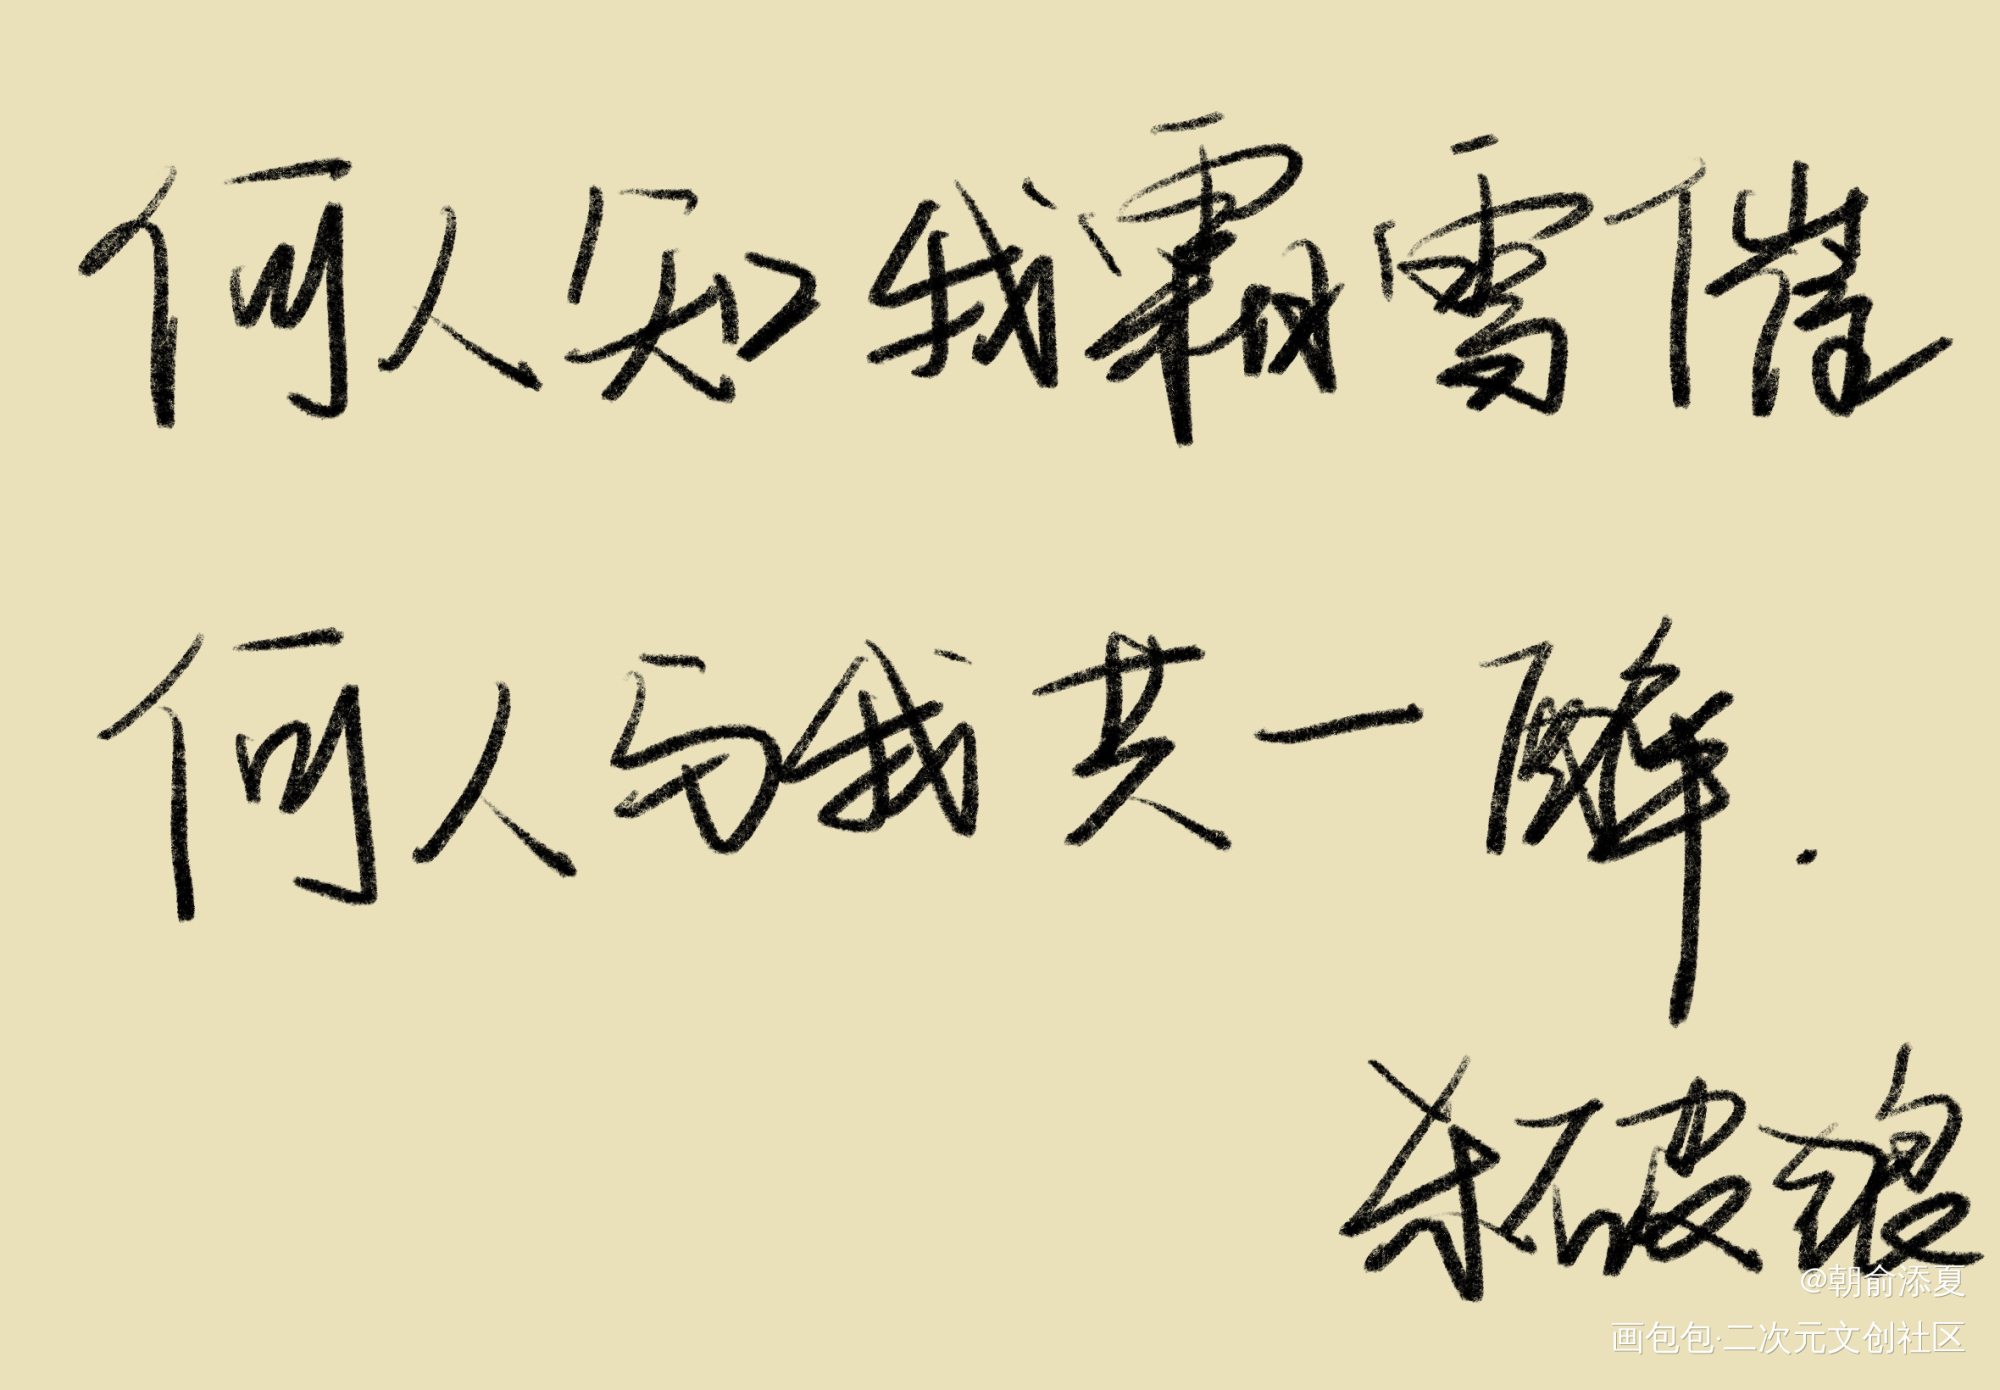 何人知我霜雪催
何人与我共一醉.
杀破狼
@朝俞添夏
画包包·二次元文创社区